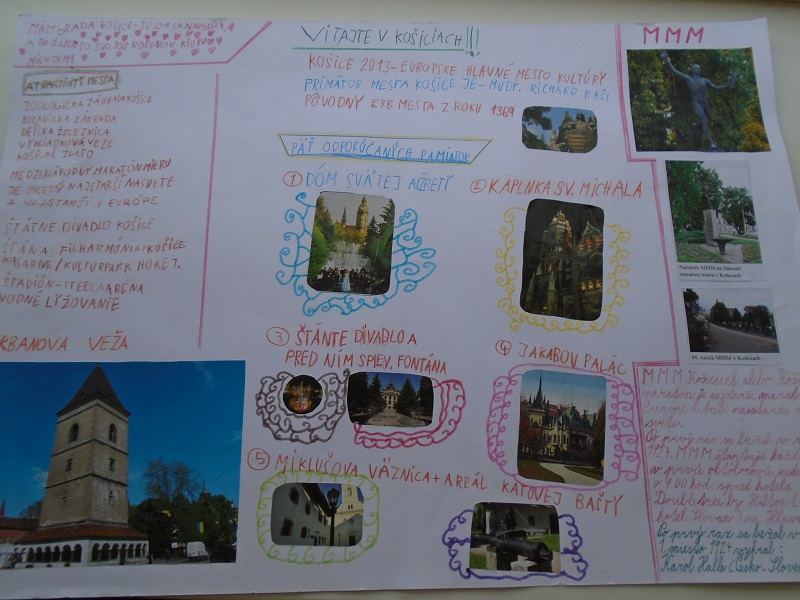 MÁM RÁDA KOŠICE-TU SOM SA NARODILA,
A TU ŽIJEM SO SVOJOU RODINOU, KTORÚ
VITAJTE V KOŠICIACH!!!
KOŠICE 2013-EUROPSKE HLAVNÉ MESTO KULTÚRY
PRIMÁTOR MESTA KOŠICE JE-MUDr. RICHARD RAŠI
PÔVODNÝ ERB MESTA Z ROKU 1369
MMM
ATRAKTIVITY MESTA:
ZOOLOGICKÁ ZÁHRADA KOŠICE
BOTANICKÁ ZÁHRADA
DETSKÁ ŽELEZNICA
VYHLIADKOVÁ VEŽA
KOŠICKÉ ZLATO
MEDZINÁRODNÝ MARATÓN MIERU
JE TRETÝ NAJSTARŠÍ NA SVETE
A NAJSTARŠÍ V EURÓPE
ŠTÁTNE DIVADLO KOŠICE
FILHARMÓNIA KOŠICE
KASÁRNE/KULTURPARK HOKEJ.
ŠTADIÓN-STEEL ARÉNA
VODNÉ LYŽOVANIE
RBANOVA VEŽA
PÄŤ ODPORÚČANÝCH PAMIATOK
1 DÓM SVÄTEJ ALŽBETY
2 KAPLNKA SV. MICHALA
3 ŠTÁNTE DIVADLO A
PRED NÍM SPIEV. FONTÁNA
4 JAKABOV PALÁC
5 MIKLUŠOVA VÄZNICA + AREÁL KATOVEJ BAŠTY
Pamätník MMM na Námestí
maratónu mieru v Košiciach
84. ročník MMM v Košiciach
MMM Košiciach alebo Koši
maratón je najstarší
Európe a treťí najstarší n
svete.
Po prvý raz sa bežal v r
1924. MMM štartuje každ
v prvú októbrovú nede
o 9.00 hod spred hotela
Doubletree by Hilton
hotel Slovan) na Hlavn
Po prvý raz sa bežal v
1. miesto 1924 vyhral:
Karol Halla Česko-Slove